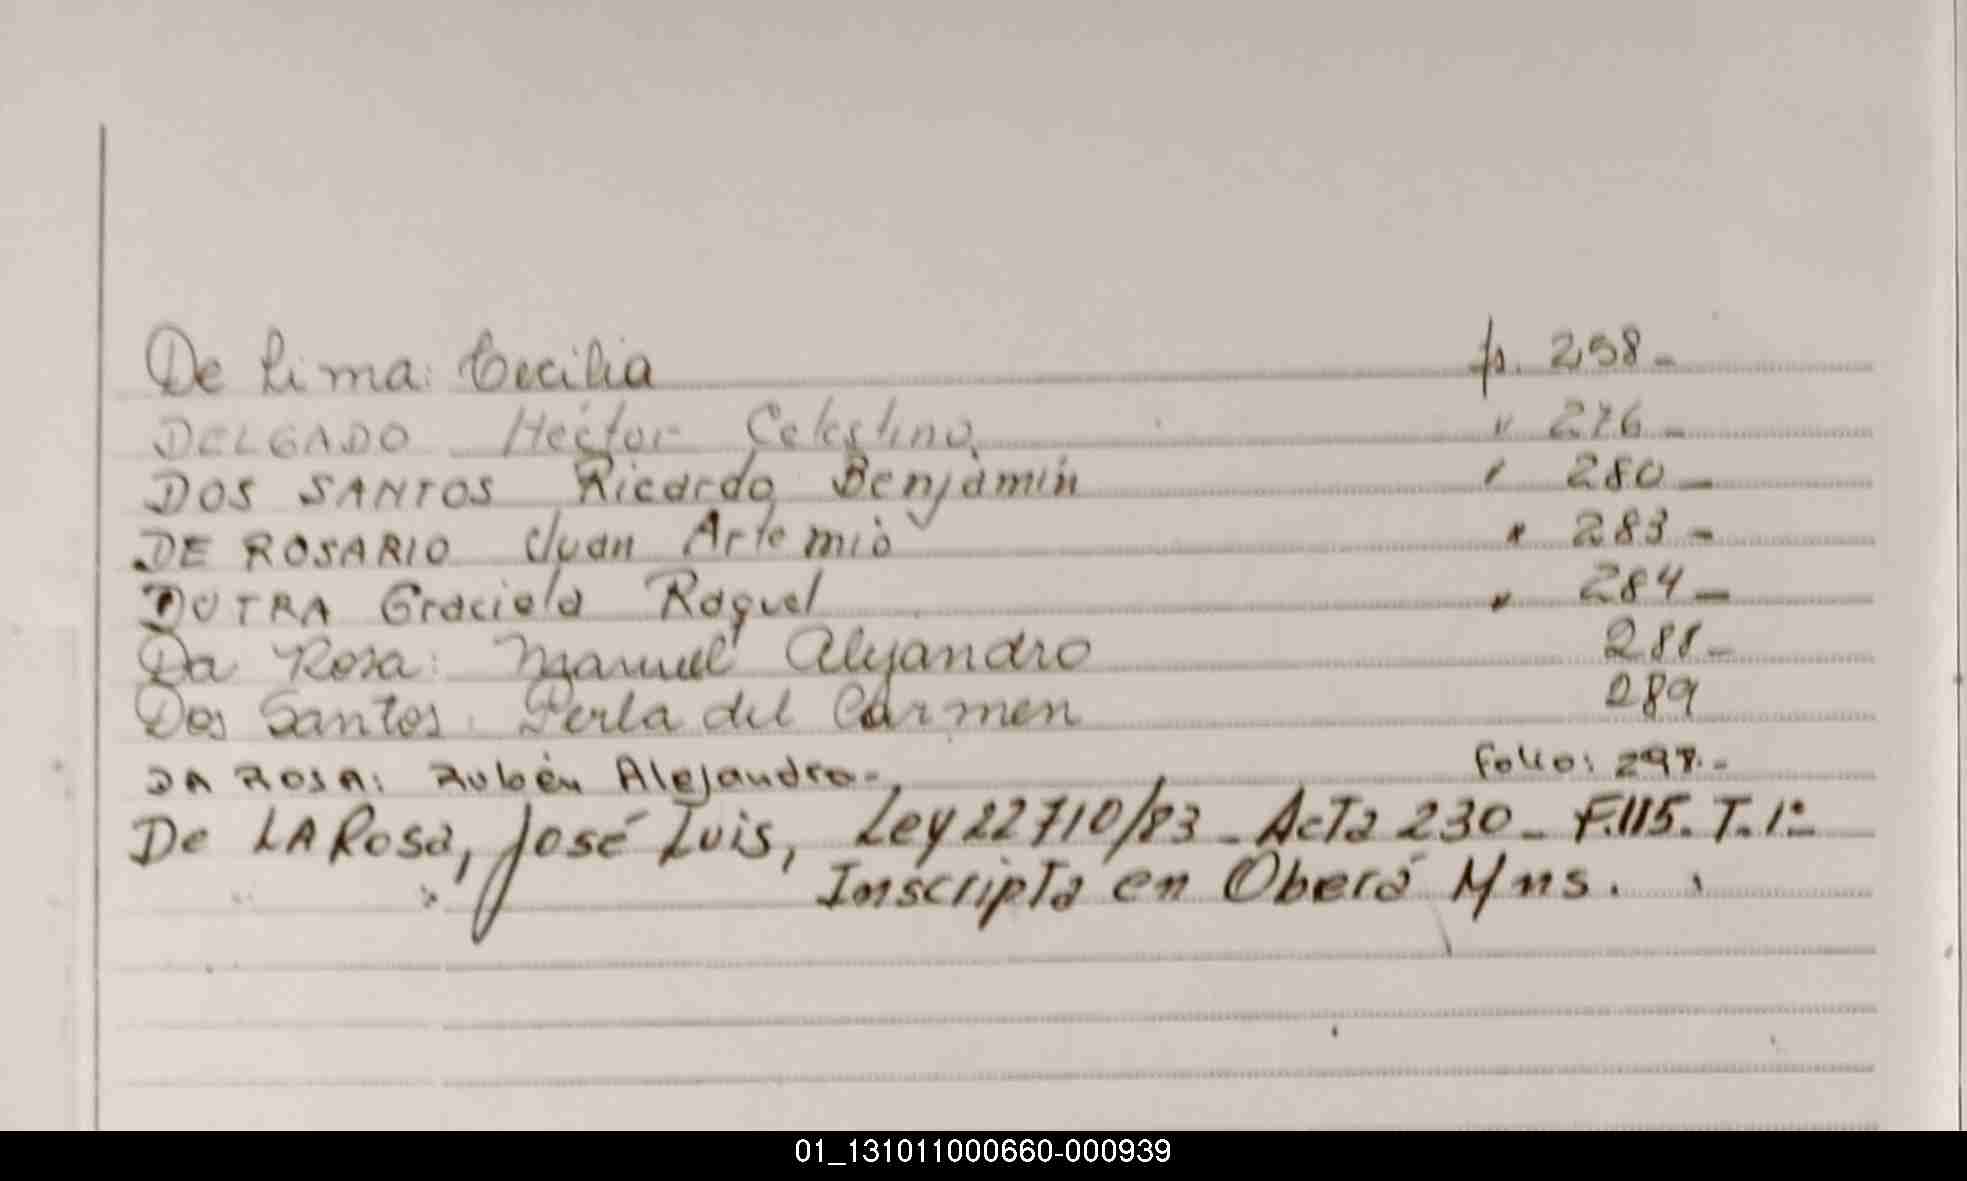 De Lima: Cecilia f. 258-
DELGADO Héctor Celestino " 276-
DOS SANTOS Ricardo Benjamin " 280-
DE ROSARIO Juan Artemio " 283-
DUTRA Graciela Raquel " 284-
Da Rosa: Manuel Alejandro 288-
Dos Santos. Perla del Carmen 289
DA ROSA: Rubén Alejandro.- Folio: 297.-
De LA Rosa, José Luis, Ley 22710/83 - Acta 230 - F.115. T. 1º
Inscripta en Oberá Mns.
01_131011000660-000939